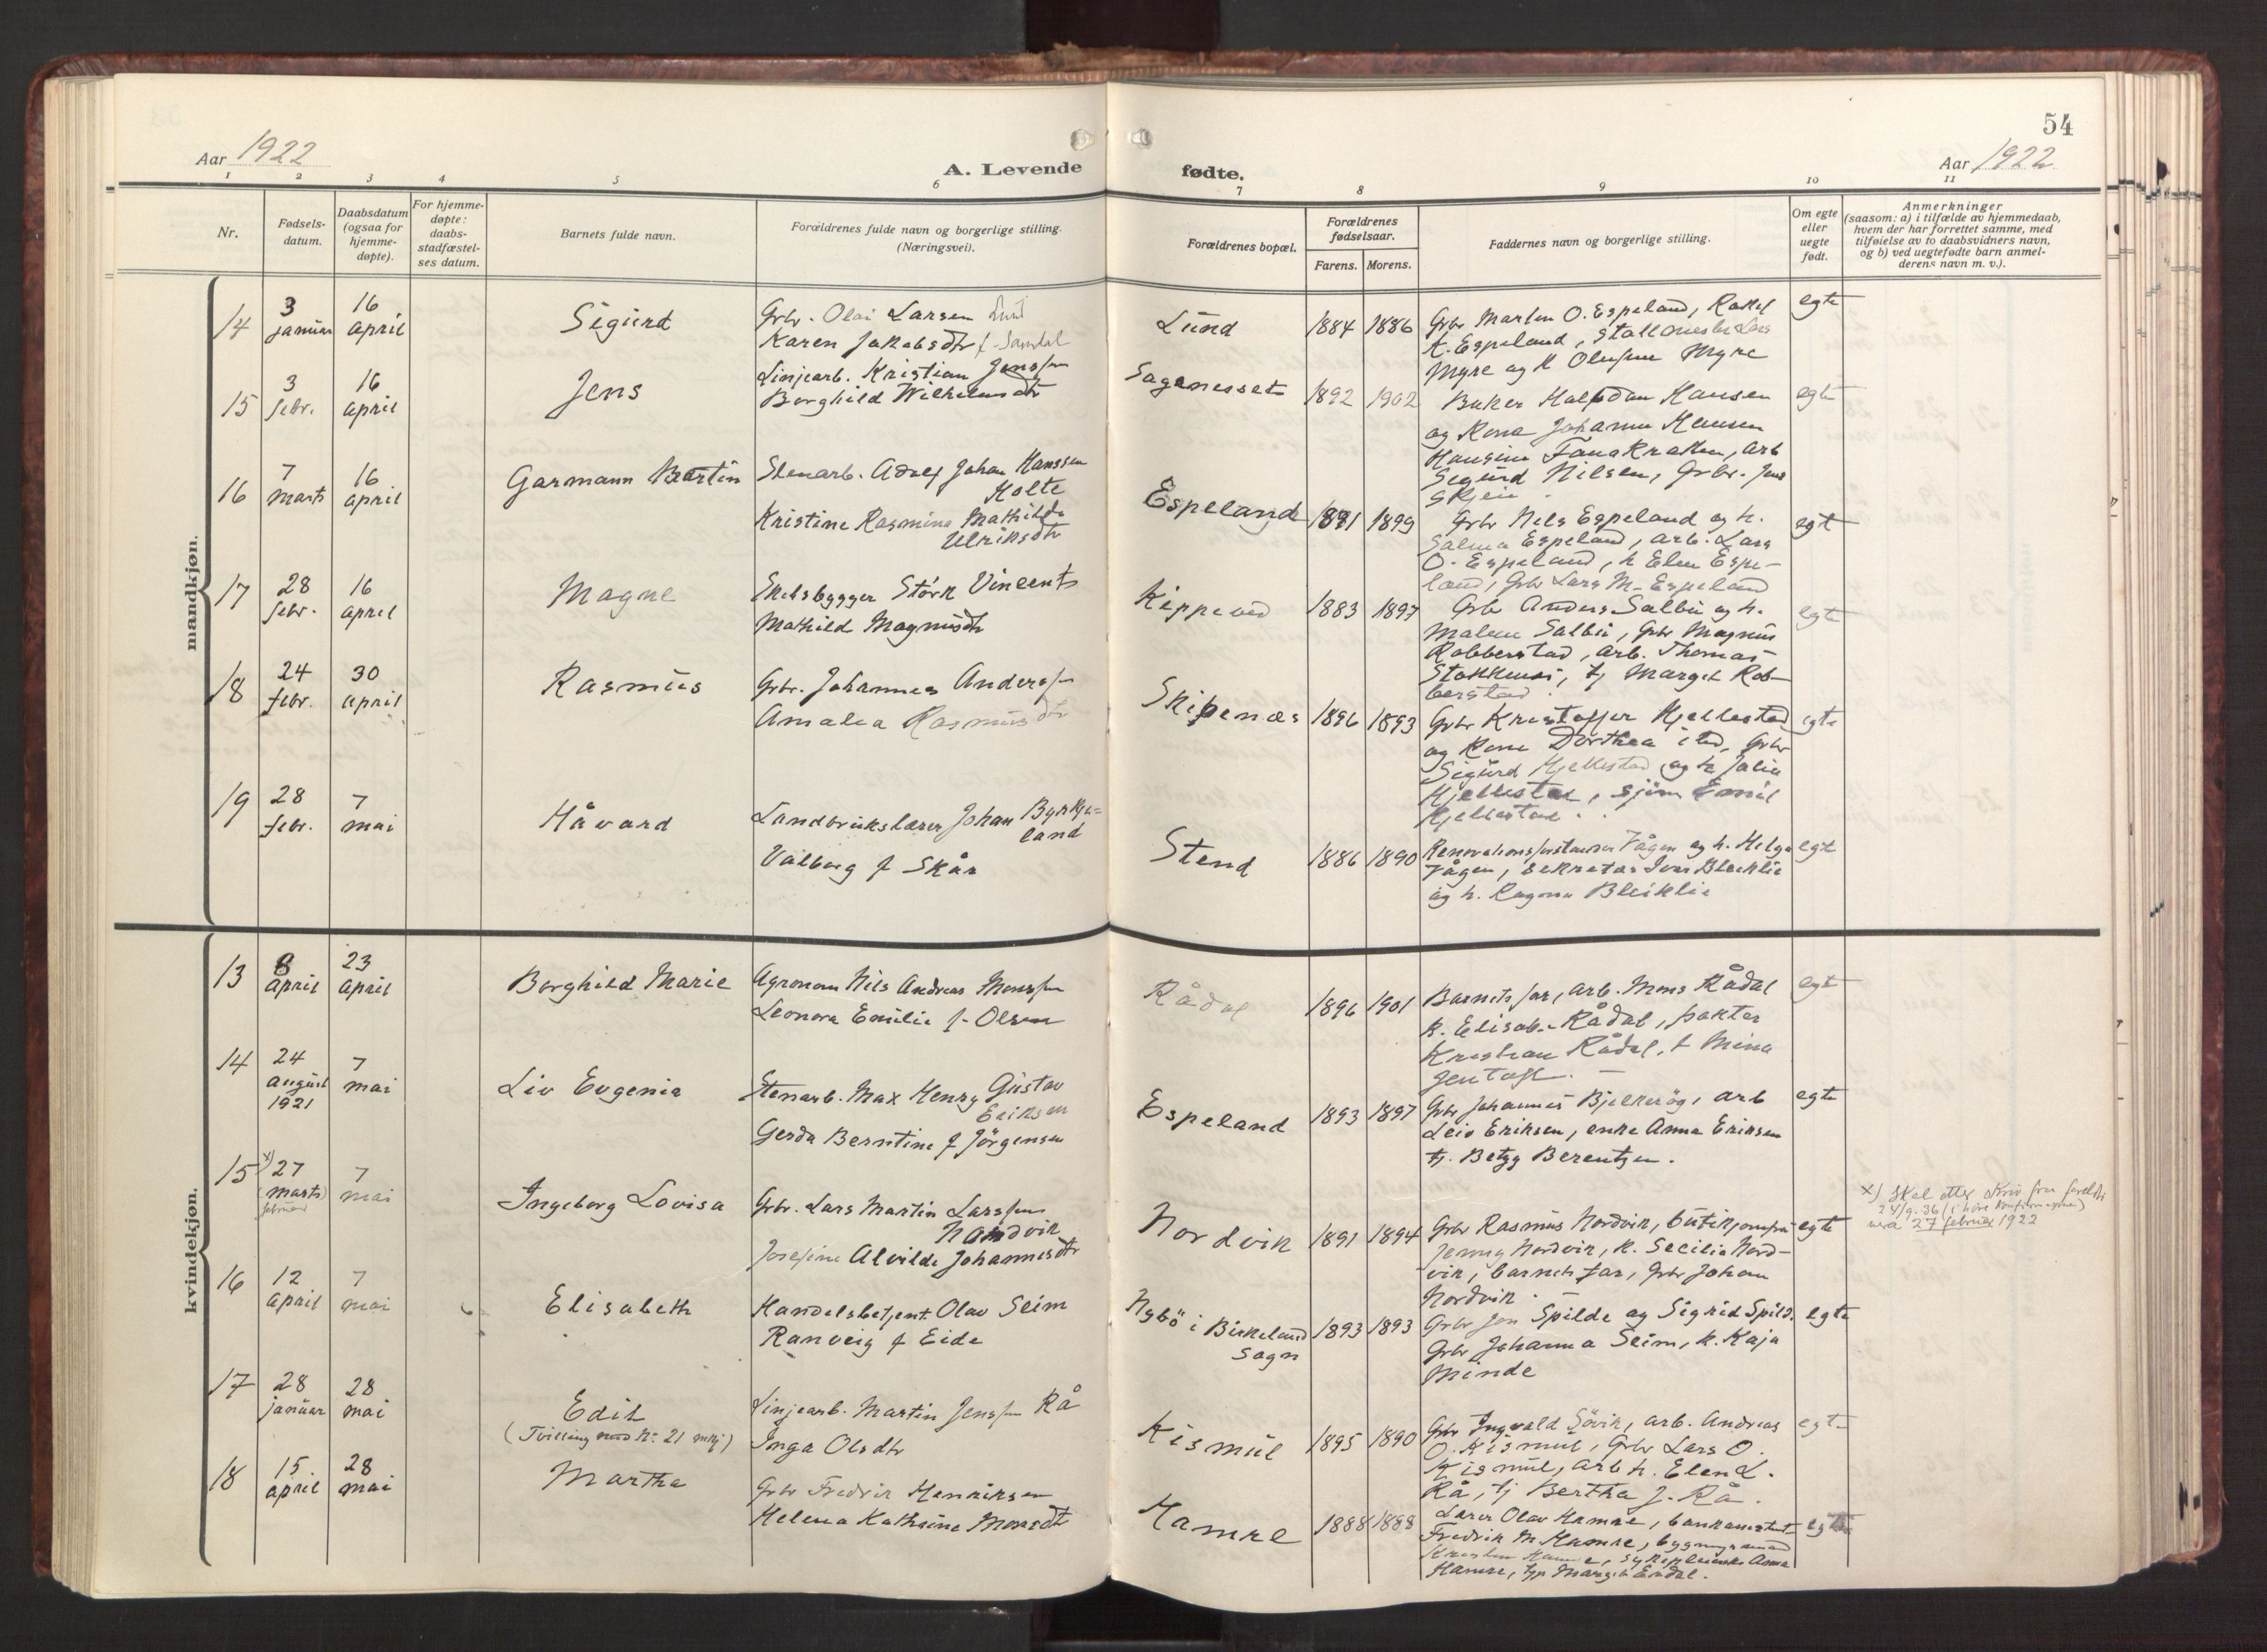 54
Aar 1922
A. Levende
fødte.
Aar 1922
1 2 3 4 5 6 7 8 9 10 11
Nr.
Fødsels-
datum.
Daabsdatum
(ogsaa for
hjemme-
døpte).
For hjemme-
døpte:
daabs-
stadfæstel-
ses datum.
Barnets fulde navn.
Forældrenes fulde navn og borgerlige stilling.
(Næringsvei).
Forældrenes bopæl.
Forældrenes
fødselsaar.
Farens. Morens.
Faddernes navn og borgerlige stilling.
Om egte
eller
uegte
født.
Anmerkninger
(saasom: a) i tilfælde av hjemmedaab,
hvem der har forrettet samme, med
tilføielse av to daabsvidners navn,
og b) ved uegtefødte barn anmel-
derens navn m. v.).
mandkjøn.
14
3
januar
16
april
Sigurd
Grbr. Olai Larsen Lund
Karen Jakobsdtr f. Samdal
Lund
1884 1886
Grbr Marten O. Espeland, Rakel
K. Espeland, Stallmester Lars
Myre og k Olufine Myre
egte
15
3
febr.
16
april
Jens
Linjearb. Kristian Jenssen
Borghild Wilhelmsdtr
Sagenesset
1892 1902
Baker Halfdan Hansen
og Kone Johanna Hansen
Hansine Fanakrakken, arb
Sigurd Nilsen, Grbr. Jens
Skjeie.
egte
16
7
marts
16
april
Garmann Martin
Stenarb. Adolf Johan Hanssen
Holte
Kristine Rasmina Mathilde
Ulriksdtr
Espeland
1891 1899
Grbr Nils Espeland og h.
Salma Espeland, arb. Lars
O. Espeland, k Elen Espe-
land, Grbr Lars M. Espeland
egte
17
28
febr.
16
april
Magne
Skibsbygger Störk Vincents
Mathild Magnusdtr
Kippeved
1883 1897
Grbr Anders Salbu og h.
Malene Salbu, Grbr Magnus
Robberstad, arb. Thomas
tj Marget Rob-
berstad.
egte
18
24
febr.
30
april
Rasmus
Grbr. Johannes Anderssen
Amalia Rasmusdtr
Skipenæs
1896 1893
Grbr Kristoffer Hjellestad
og Kone Dorthea ibd, Grbr
Sigurd Hjellestad og h Julia
Hjellestad, sjøm Emil
Hjellestad.
egte
19
28
febr.
7
mai
Håvard
Landbrukslærer Johan Byrkje=
land
Valborg f Skår
Stend
1886 1890
Vågen og h. Helga
Vågen, sekretær Iver Bleiklie
og h. Ragna Bleiklie
egte
kvindekjøn.
13
8
april
23
april
Borghild Marie
Agronom Nils Andreas Monssen
Leonora Emilie f. Olsen
Rådal
1896 1901
Barnets far, arb. Mons Rådal
k. Elisab. Rådal, pakter
Kristian Rådal, t Mina
Gentoft.
egte
14
24
august
1921
7
mai
Liv Evgenia
Stenarb. Max Henry Gustav
Eriksen
Gerda Berntine f Jörgensen
Espeland
1893 1897
Grbr Johannes Bjelkeröy, arb
Leiv Eriksen, enke Anna Eriksen
tj. Betzy Berentzen.
egte
15
x)
27
(marts)
februar
7
mai
Ingeborg Lovisa
Grbr. Lars Martin Larssen
Nordvik
Josefine Alvilde Johannesdtr
Nordvik
1891 1894
Grbr Rasmus Nordvik, butikjomfru
Jenny Nordvik, k. Secilia Nord-
vik, barnets far, Grbr Johan
Nordvik.
egte
x) Skal etter skriv fra foreldre
24/9.36
vera 27 februar 1922
16
12
april
7
mai
Elisabeth
Handelsbetjent Olav Seim
Ranveig f Eide
Nybö i Birkeland
Sogn
1893 1893
Grbr Jon Spilde og Sigrid Spilde
Grbr Johanna Seim, k. Kaja
Minde
egte
17
28
januar
28
mai
Edit
(Tvilling med Nr 21 mkj)
Linjearb. Martin Jenssen Rå
Inga Olsdtr
Kismul
1895 1890
Grbr Ingvald Sövik, arb. Andreas
O. Kismul, Grbr Lars O.
Kismul, arb h. Elen L.
Rå, tj Bertha J. Rå.
egte
18
15.
april
28
mai
Martha
Grbr Fredrik Henriksen
Helena Kathrine Monsdtr
Hamre
1888 1888
Lærer Olav Hamre, bankassistent
Fredrik M Hamre,
Kristen Hamre, sykepleierske Anna
Hamre, tjp Margit Endal.
egte